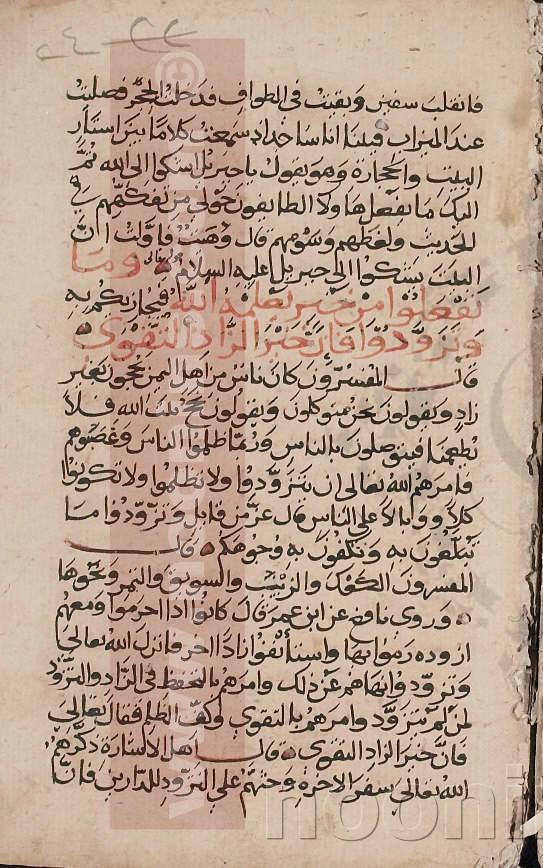 فانفلت سفين وبقيت في الطواف فدخلت الحجر فصليت
عند الميزاب فبينا انا ساجد اذ سمعت كلاما بين استار
البيت والحجارة وهو يقول يا جبريل اشكوا الى الله ثم
اليك ما يفعل هاولا الطايفون حولي من تفكههم في
الحديث ولغطهم وشومهم قال وهيب فاولت ان
البيت يشكوا الى جبريل عليه السلام وما
تفعلوا من خير يعلمه الله فيجازيكم به
وتزودوا فان خير الزاد التقوى
قال المفسرون كان ناس من اهل اليمن يحجون بغير
زاد ويقولون نحن متوكلون ويقولون نحج بيت الله فلا
يطعمنا فيتوصلون بالناس وربما ظلموا الناس وغصبوهم
فامرهم الله تعالى ان يتزودوا ولا يظلموا ولا تكونوا
كلا ووبالا على الناس قال عز من قايل وتزودوا ما
تبتلغون به وتكفون به وجوهكم قال
المفسرون الكعك والزبيب والسويق والتمر ونحوها
وروى نافع عن ابن عمر قال كانوا اذا احرموا ومعهم
ازوده رموا بها واستأنفوا زادا اخر فانزل الله تعالى
وتزودوا نهاهم عن ذلك وامرهم بالتحفظ في الزاد والتزود
لمن لم يتزود وامرهم بالتقوى وكف الظلم فقال تعالى
فان خير الزاد التقوى قال اهل الاشارة ذكرهم
الله تعالى سفر الاخرة وحثهم على التزود للدارين فان
nooni